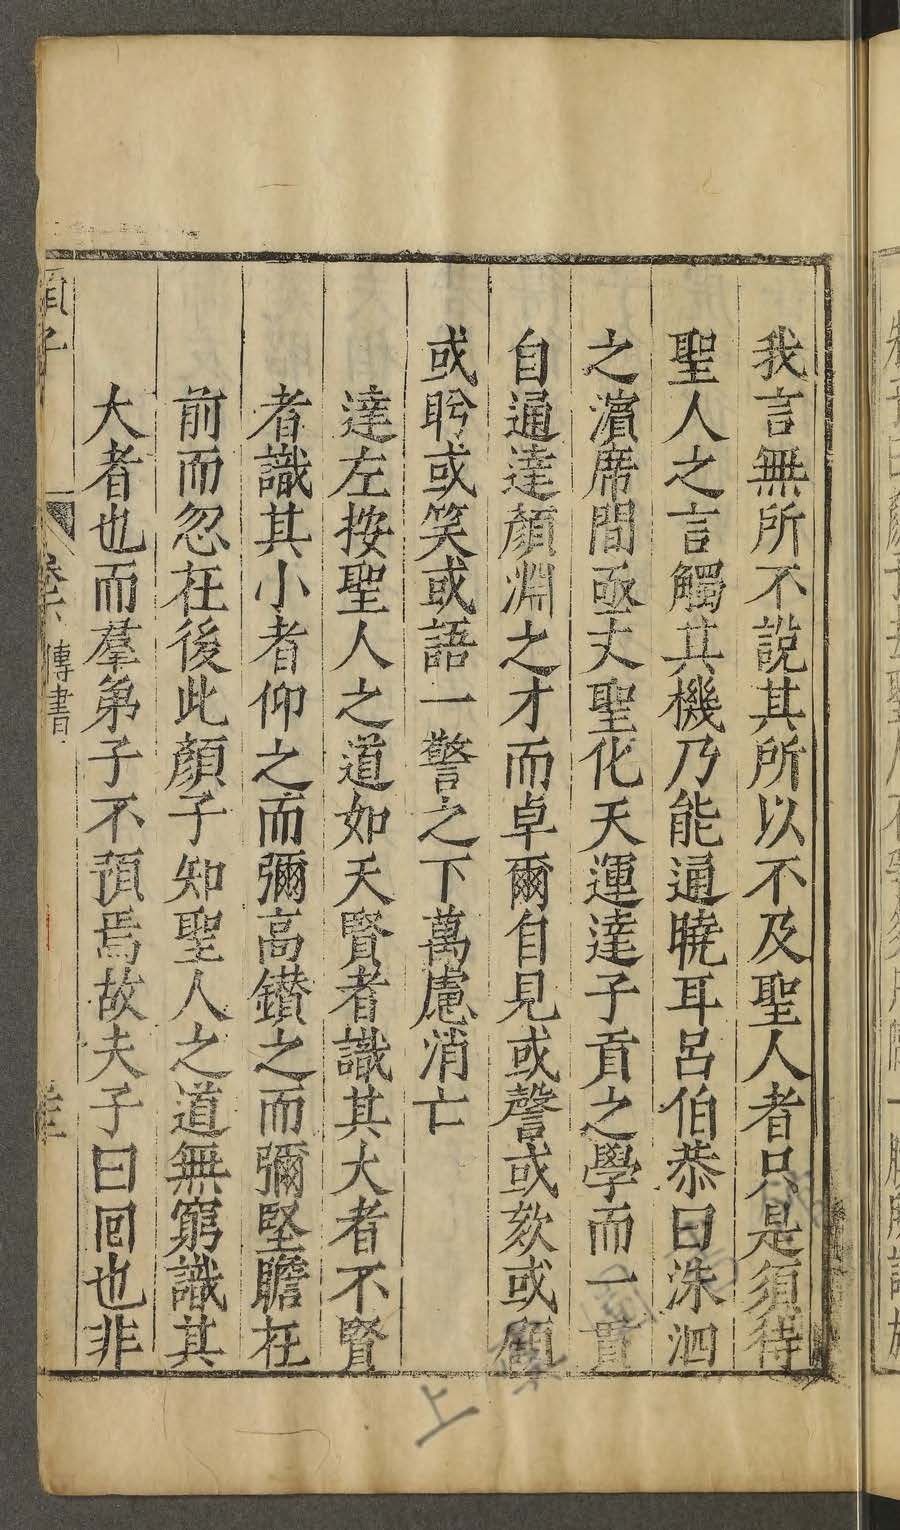 我言無所不說其所以不及聖人者只是須待
聖人之言觸其機乃能通曉耳呂伯恭曰洙泗
之濵席間函丈聖化天運達子貢之學而一貫
自通達顏淵之才而卓爾自見或謦或欬或顧
或盻或笑或語一警之下萬慮消亡
達左按聖人之道如天賢者識其大者不賢
者識其小者仰之而彌高鑚之而彌堅瞻在
前而忽在後此顏子知聖人之道無窮識其
大者也而羣弟子不預焉故夫子曰回也非
傳書